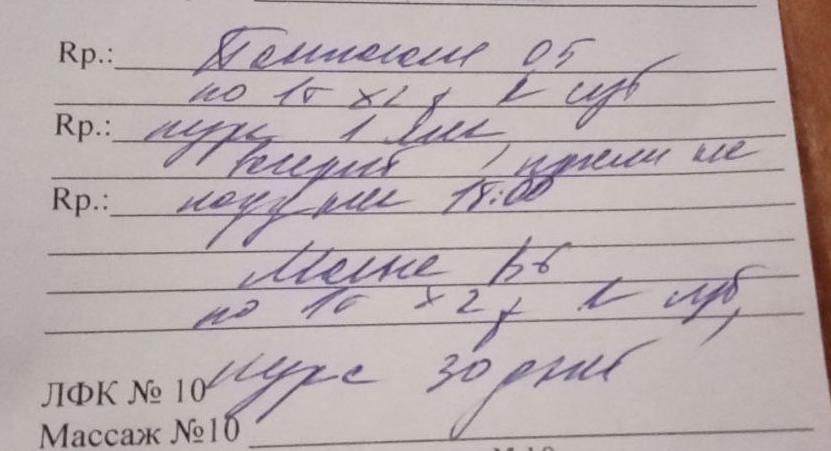 Rp.: Пантогам 0,5
по 1т х 2 р в сут
Rp.: курс 1 мес,
второй , прием не
Rp.: позднее 18:00
Магне В6
по 1т х 2 р в сут,
курс 30 дней
ЛФК № 10
Массаж №10